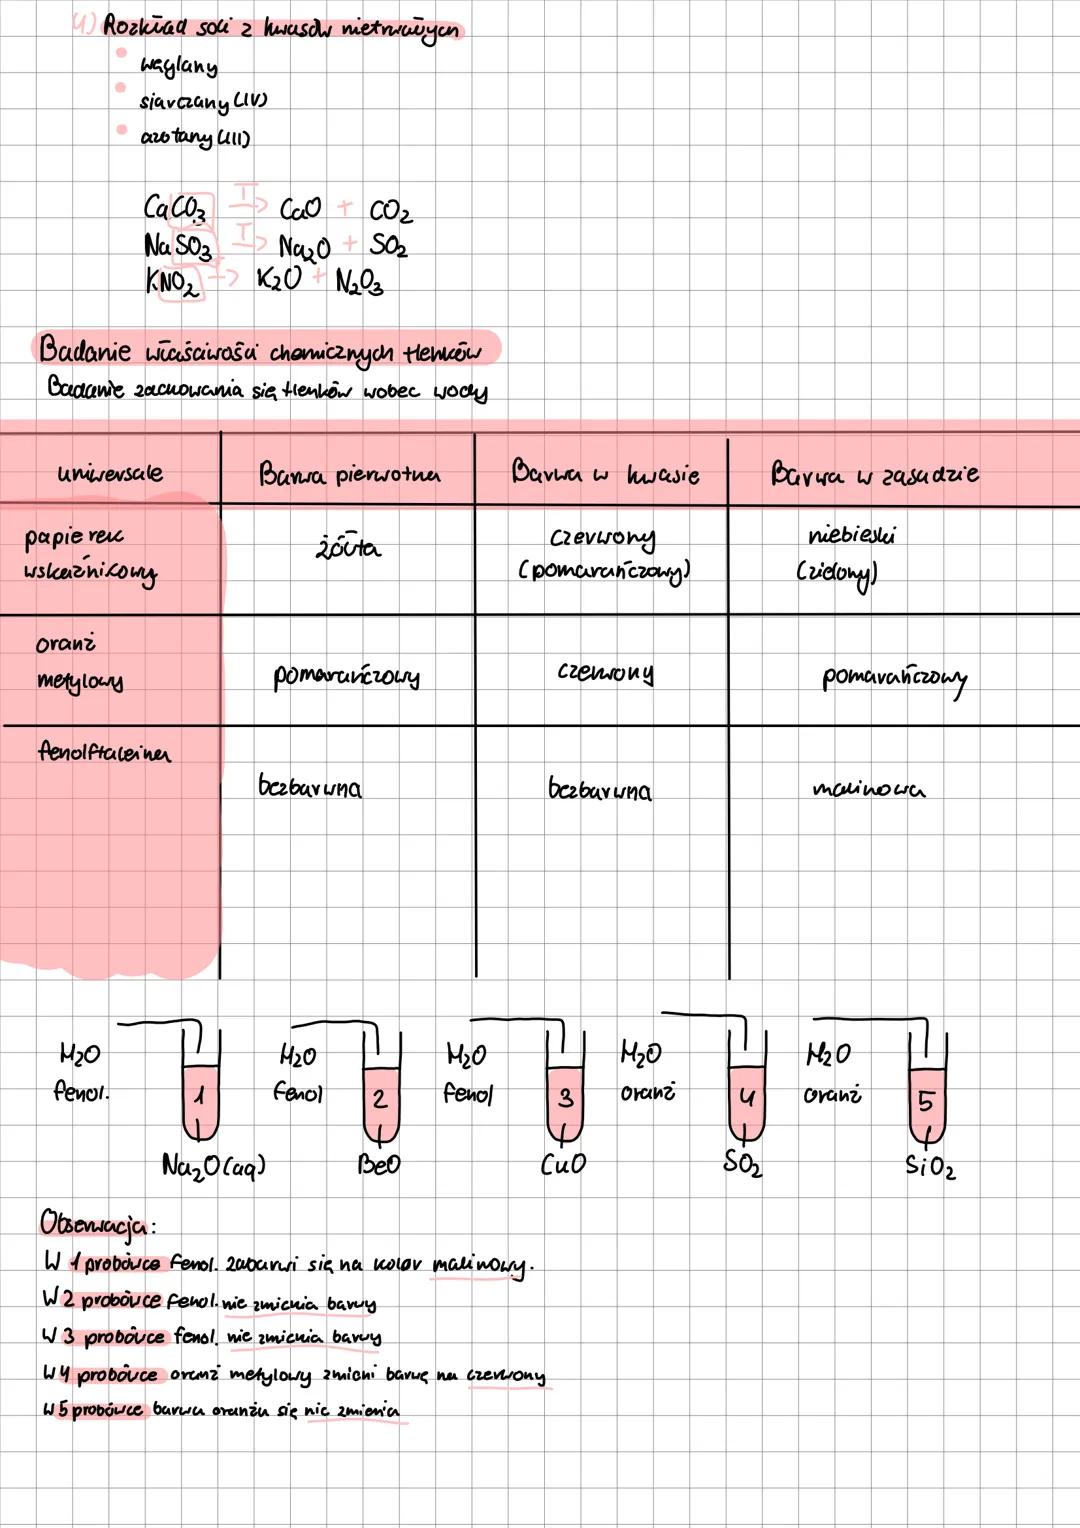 4) Rozkład soli z kwasów nietrwałych
• węglany
• siarczany (IV)
• azotany (III)
CaCO3 T→ CaO + CO2
NaSO3 T→ Na2O + SO2
KNO2 T→ K2O + N2O3
Badanie właściwości chemicznych tlenków
Badanie zachowania się tlenków wobec wody
uniwersale Barwa pierwotna Barwa w kwasie Barwa w zasadzie
papierek wskaźnikowy żółta czerwony (pomarańczowy) niebieski (zielony)
oranż metylowy pomarańczowy czerwony pomarańczowy
fenolftaleina bezbarwna bezbarwna malinowa
H2O fenol. 1 Na2O(aq)
H2O fenol 2 BeO
H2O fenol 3 CuO
H2O oranż 4 SO2
H2O oranż 5 SiO2
Obserwacja:
W 1 probówce fenol. zabarwi się na kolor malinowy.
W 2 probówce fenol. nie zmienia barwy
W 3 probówce fenol. nie zmienia barwy
W 4 probówce oranż metylowy zmieni barwę na czerwony
W 5 probówce barwa oranżu się nie zmienia